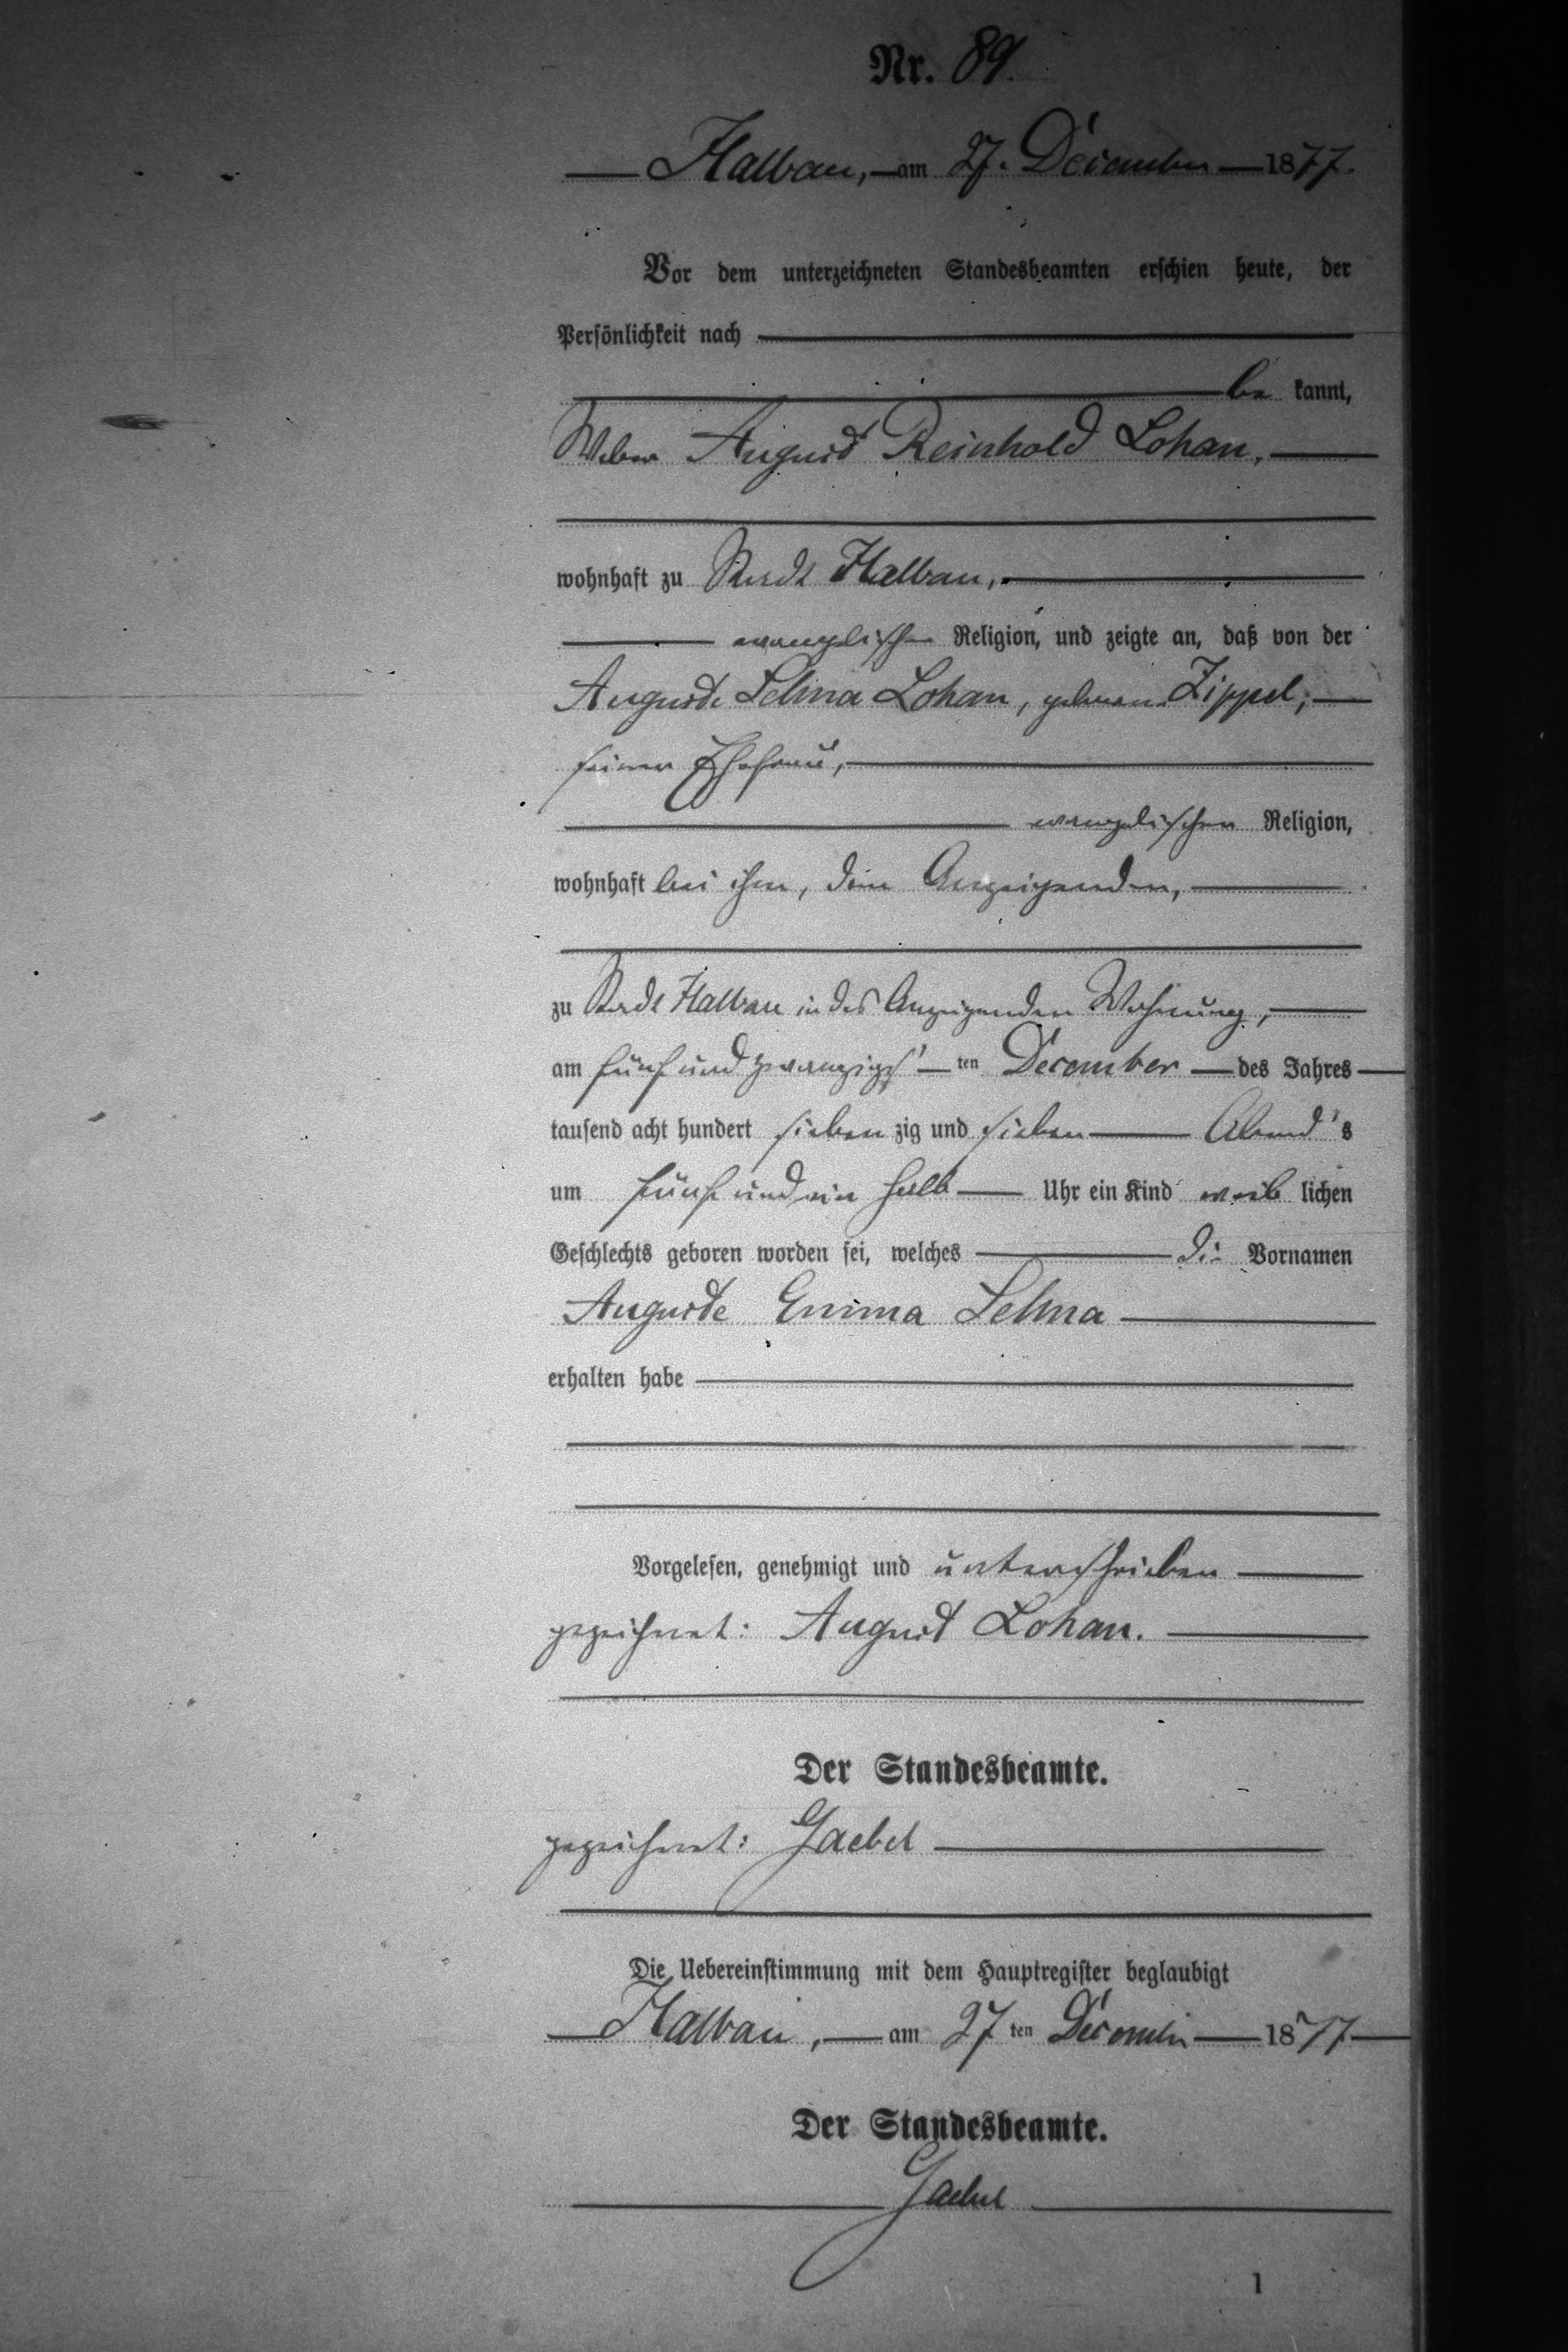 Nr. 89.
Halbau, am 27. December 1877.
Vor dem unterzeichneten Standesbeamten erschien heute, der
Persönlichkeit nach
be kannt,
Weber August Reinhold Lohan,
wohnhaft zu Stadt Halbau,
evangelischer Religion, und zeigte an, daß von der
Auguste Selma Lohan, geborenen Zippel,
seiner Ehefrau,
evangelischen Religion,
wohnhaft bei ihm, dem Anzeigenden,
zu Stadt Halbau in des Anzeigenden Wohnung,
am fünf und zwanzigst ten December des Jahres
tausend acht hundert sieben zig und sieben Abend s
um fünf und ein halb Uhr ein Kind weib lichen
Geschlechts geboren worden sei, welches die Vornamen
Auguste Emma Selma
erhalten habe
Vorgelesen, genehmigt und unterschrieben
gezeichnet: August Lohan.
Der Standesbeamte.
gezeichnet: Gaebel
Die Uebereinstimmung mit dem Hauptregister beglaubigt
Halbau, am 27 ten December 1877
Der Standesbeamte.
Gaebel
1